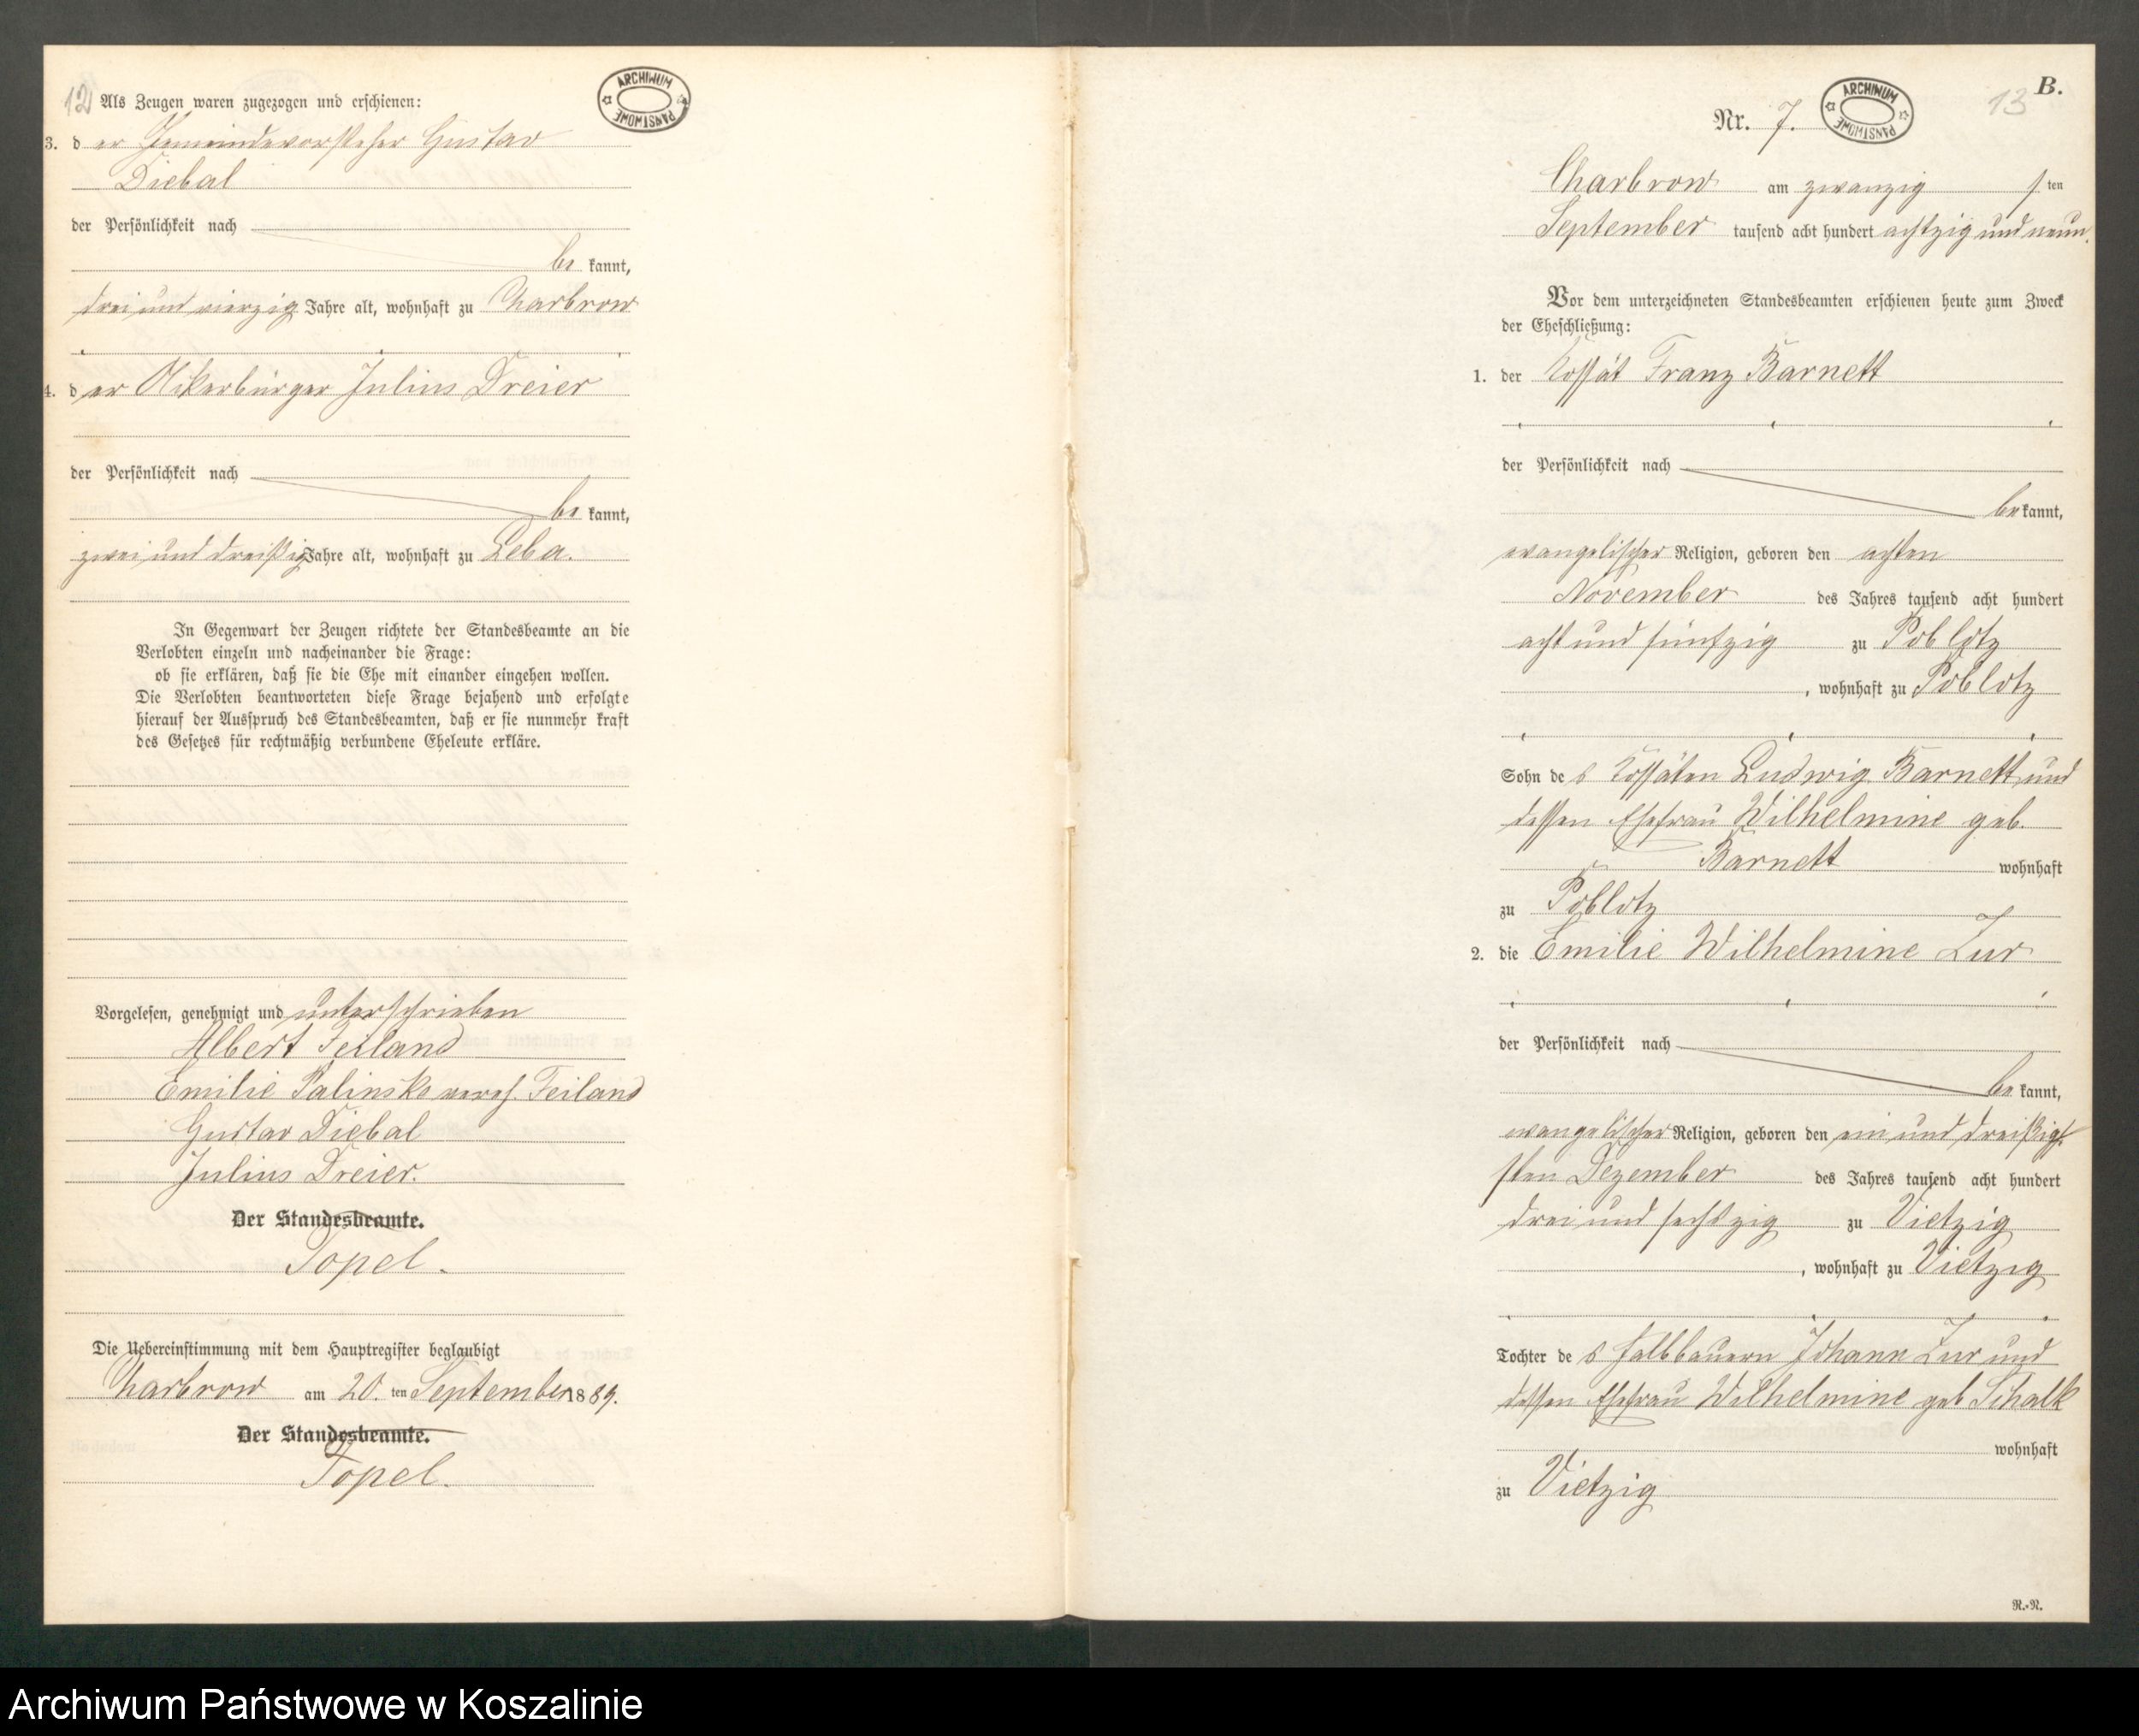 12
ARCHIWUM
PAŃSTWOWE
Als Zeugen waren zugezogen und erschienen:
3. der Gemeindevorsteher Gustav
Diebal
der Persönlichkeit nach
be kannt,
drei und vierzig Jahre alt, wohnhaft zu Charbrow
4. der Ackerbürger Julius Dreier
der Persönlichkeit nach
be kannt,
zwei und dreißig Jahre alt, wohnhaft zu Leba.
In Gegenwart der Zeugen richtete der Standesbeamte an die
Verlobten einzeln und nacheinander die Frage:
ob sie erklären, daß sie die Ehe mit einander eingehen wollen.
Die Verlobten beantworteten diese Frage bejahend und erfolgte
hierauf der Ausspruch des Standesbeamten, daß er sie nunmehr kraft
des Gesetzes für rechtmäßig verbundene Eheleute erkläre.
Vorgelesen, genehmigt und unterschrieben
Albert Feiland
Emilie Palinske vereh. Feiland
Gustav Diebal
Julius Dreier.
Der Standesbeamte.
Topel.
Die Uebereinstimmung mit dem Hauptregister beglaubigt
Charbrow am 20. ten September 1889.
Der Standesbeamte.
Topel.
B.
13
ARCHIWUM
PAŃSTWOWE
Nr. 7.
Charbrow am zwanzig sten
September tausend acht hundert achtzig und neun.
Vor dem unterzeichneten Standesbeamten erschienen heute zum Zweck
der Eheschließung:
1. der Kossät Franz Barnett
der Persönlichkeit nach
be kannt,
evangelischer Religion, geboren den achten
November des Jahres tausend acht hundert
acht und fünfzig zu Poblotz
, wohnhaft zu Poblotz
Sohn des Kossäten Ludwig Barnett und
dessen Ehefrau Wilhelmine geb.
Barnett wohnhaft
zu Poblotz
2. die Emilie Wilhelmine Zur
der Persönlichkeit nach
be kannt,
evangelischer Religion, geboren den ein und dreißig
sten Dezember des Jahres tausend acht hundert
drei und sechszig zu Vietzig
, wohnhaft zu Vietzig
Tochter des Halbbauern Johann Zur und
dessen Ehefrau Wilhelmine geb Schalk
wohnhaft
zu Vietzig
R.-N.
Archiwum Państwowe w Koszalinie